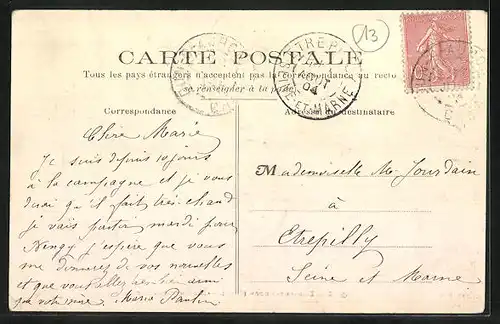 13
CARTE POSTALE
Tous les pays étrangers n'acceptent pas la correspondance au recto
se renseigner à la poste
Correspondance
Adresse du destinataire
ETREPILLY
AOUT
04
SEINE-ET-MARNE
Chère Marie
Je suis depuis 10 jours
à la campagne et je vous
dirai qu'il fait très chaud
je vais partir mardi pour
j'espère que vous
me donnerez de vos nouvelles
et que vous allez bien
Marie
Mademoiselle M. Jourdain
à
Etrepilly
Seine et Marne